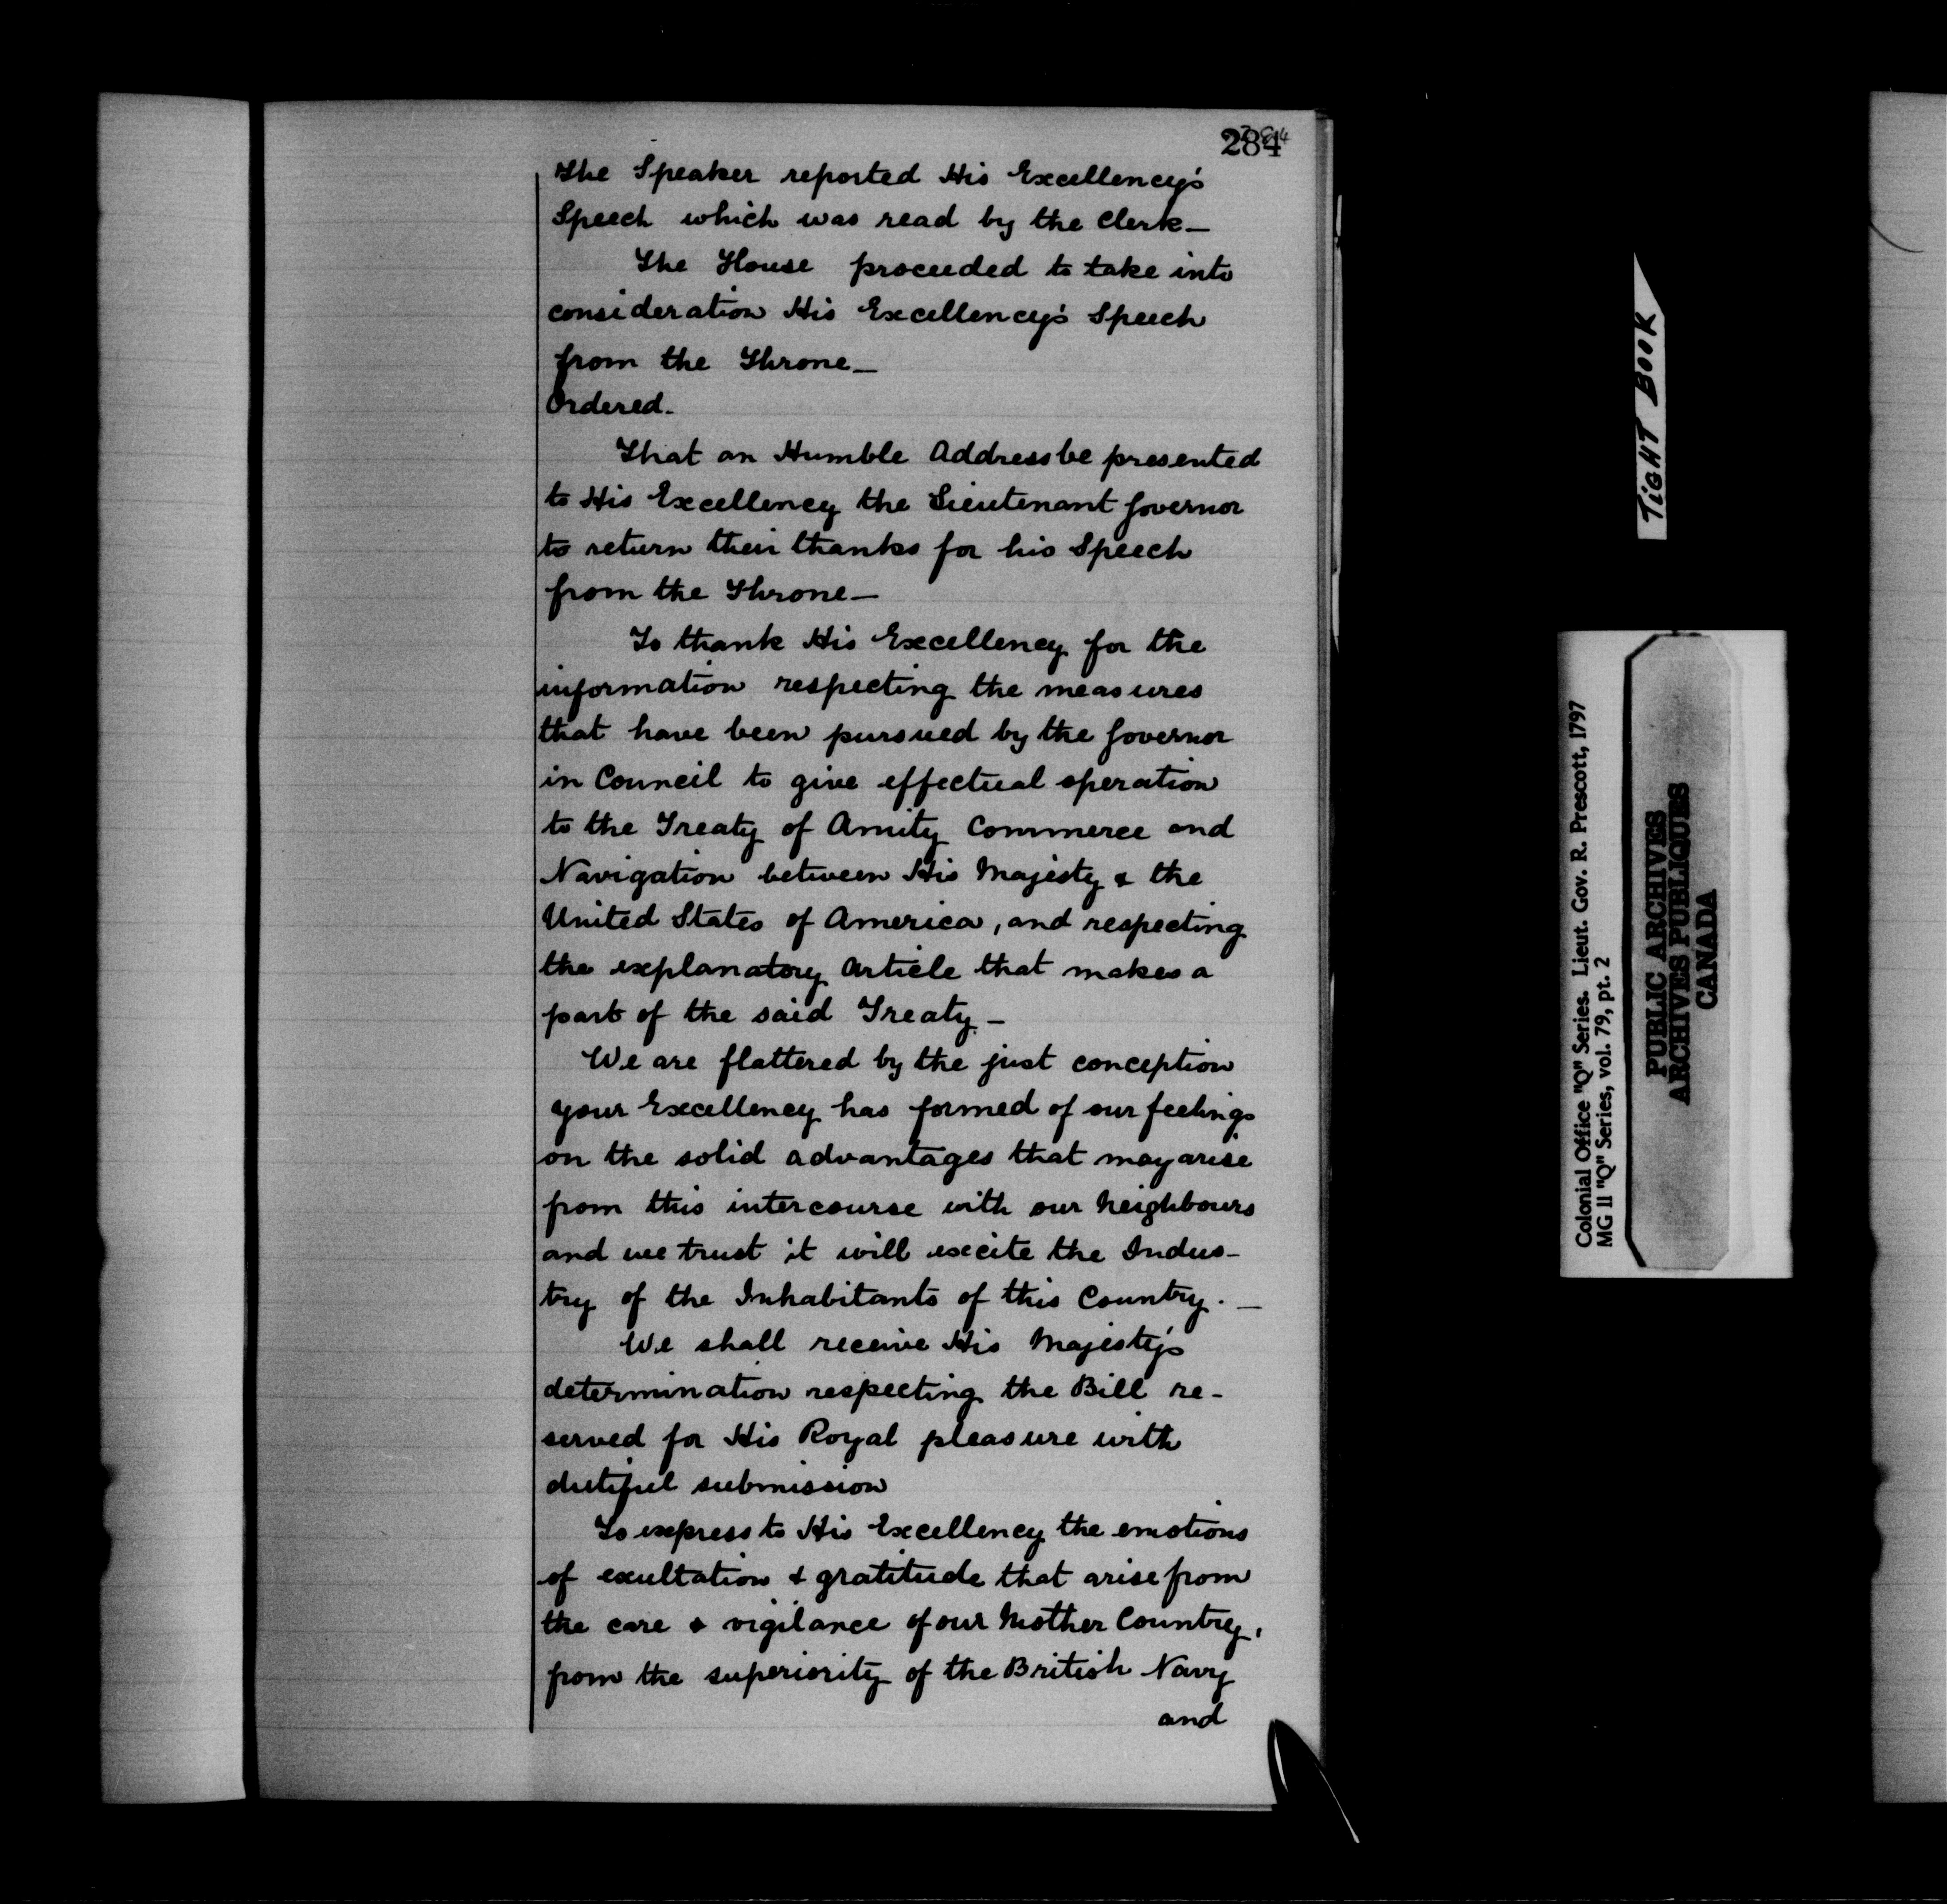 284
The Speaker reported His Excellency's
Speech which was read by the Clerk—
The House proceeded to take into
consideration His Excellency's Speech
from the Throne—
Ordered.
That an Humble Address be presented
to His Excellency the Lieutenant Governor
to return their thanks for his Speech
from the Throne—
To thank His Excellency for the
information respecting the measures
that have been pursued by the Governor
in Council to give effectual operation
to the Treaty of Amity Commerce and
Navigation between His Majesty & the
United States of America, and respecting
the explanatory Article that makes a
part of the said Treaty—
We are flattered by the just conception
your Excellency has formed of our feelings
on the solid advantages that may arise
from this intercourse with our Neighbours
and we trust it will excite the Indus-
try of the Inhabitants of this Country.—
We shall receive His Majesty's
determination respecting the Bill re-
served for His Royal pleasure with
dutiful submission
To express to His Excellency the emotions
of exultation & gratitude that arise from
the care & vigilance of our Mother Country,
from the superiority of the British Navy
and
TIGHT BOOK
Colonial Office "Q" Series. Lieut. Gov. R. Prescott, 1797
MG 11 "Q" Series, vol. 79, pt. 2
PUBLIC ARCHIVES
ARCHIVES PUBLIQUES
CANADA